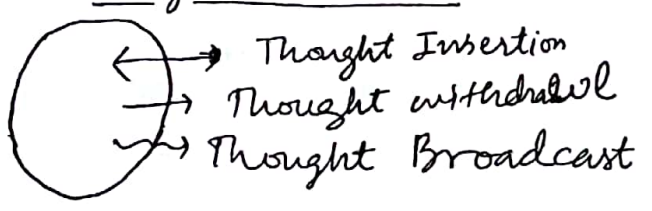 Thought Insertion
Thought withdrawl
Thought Broadcast